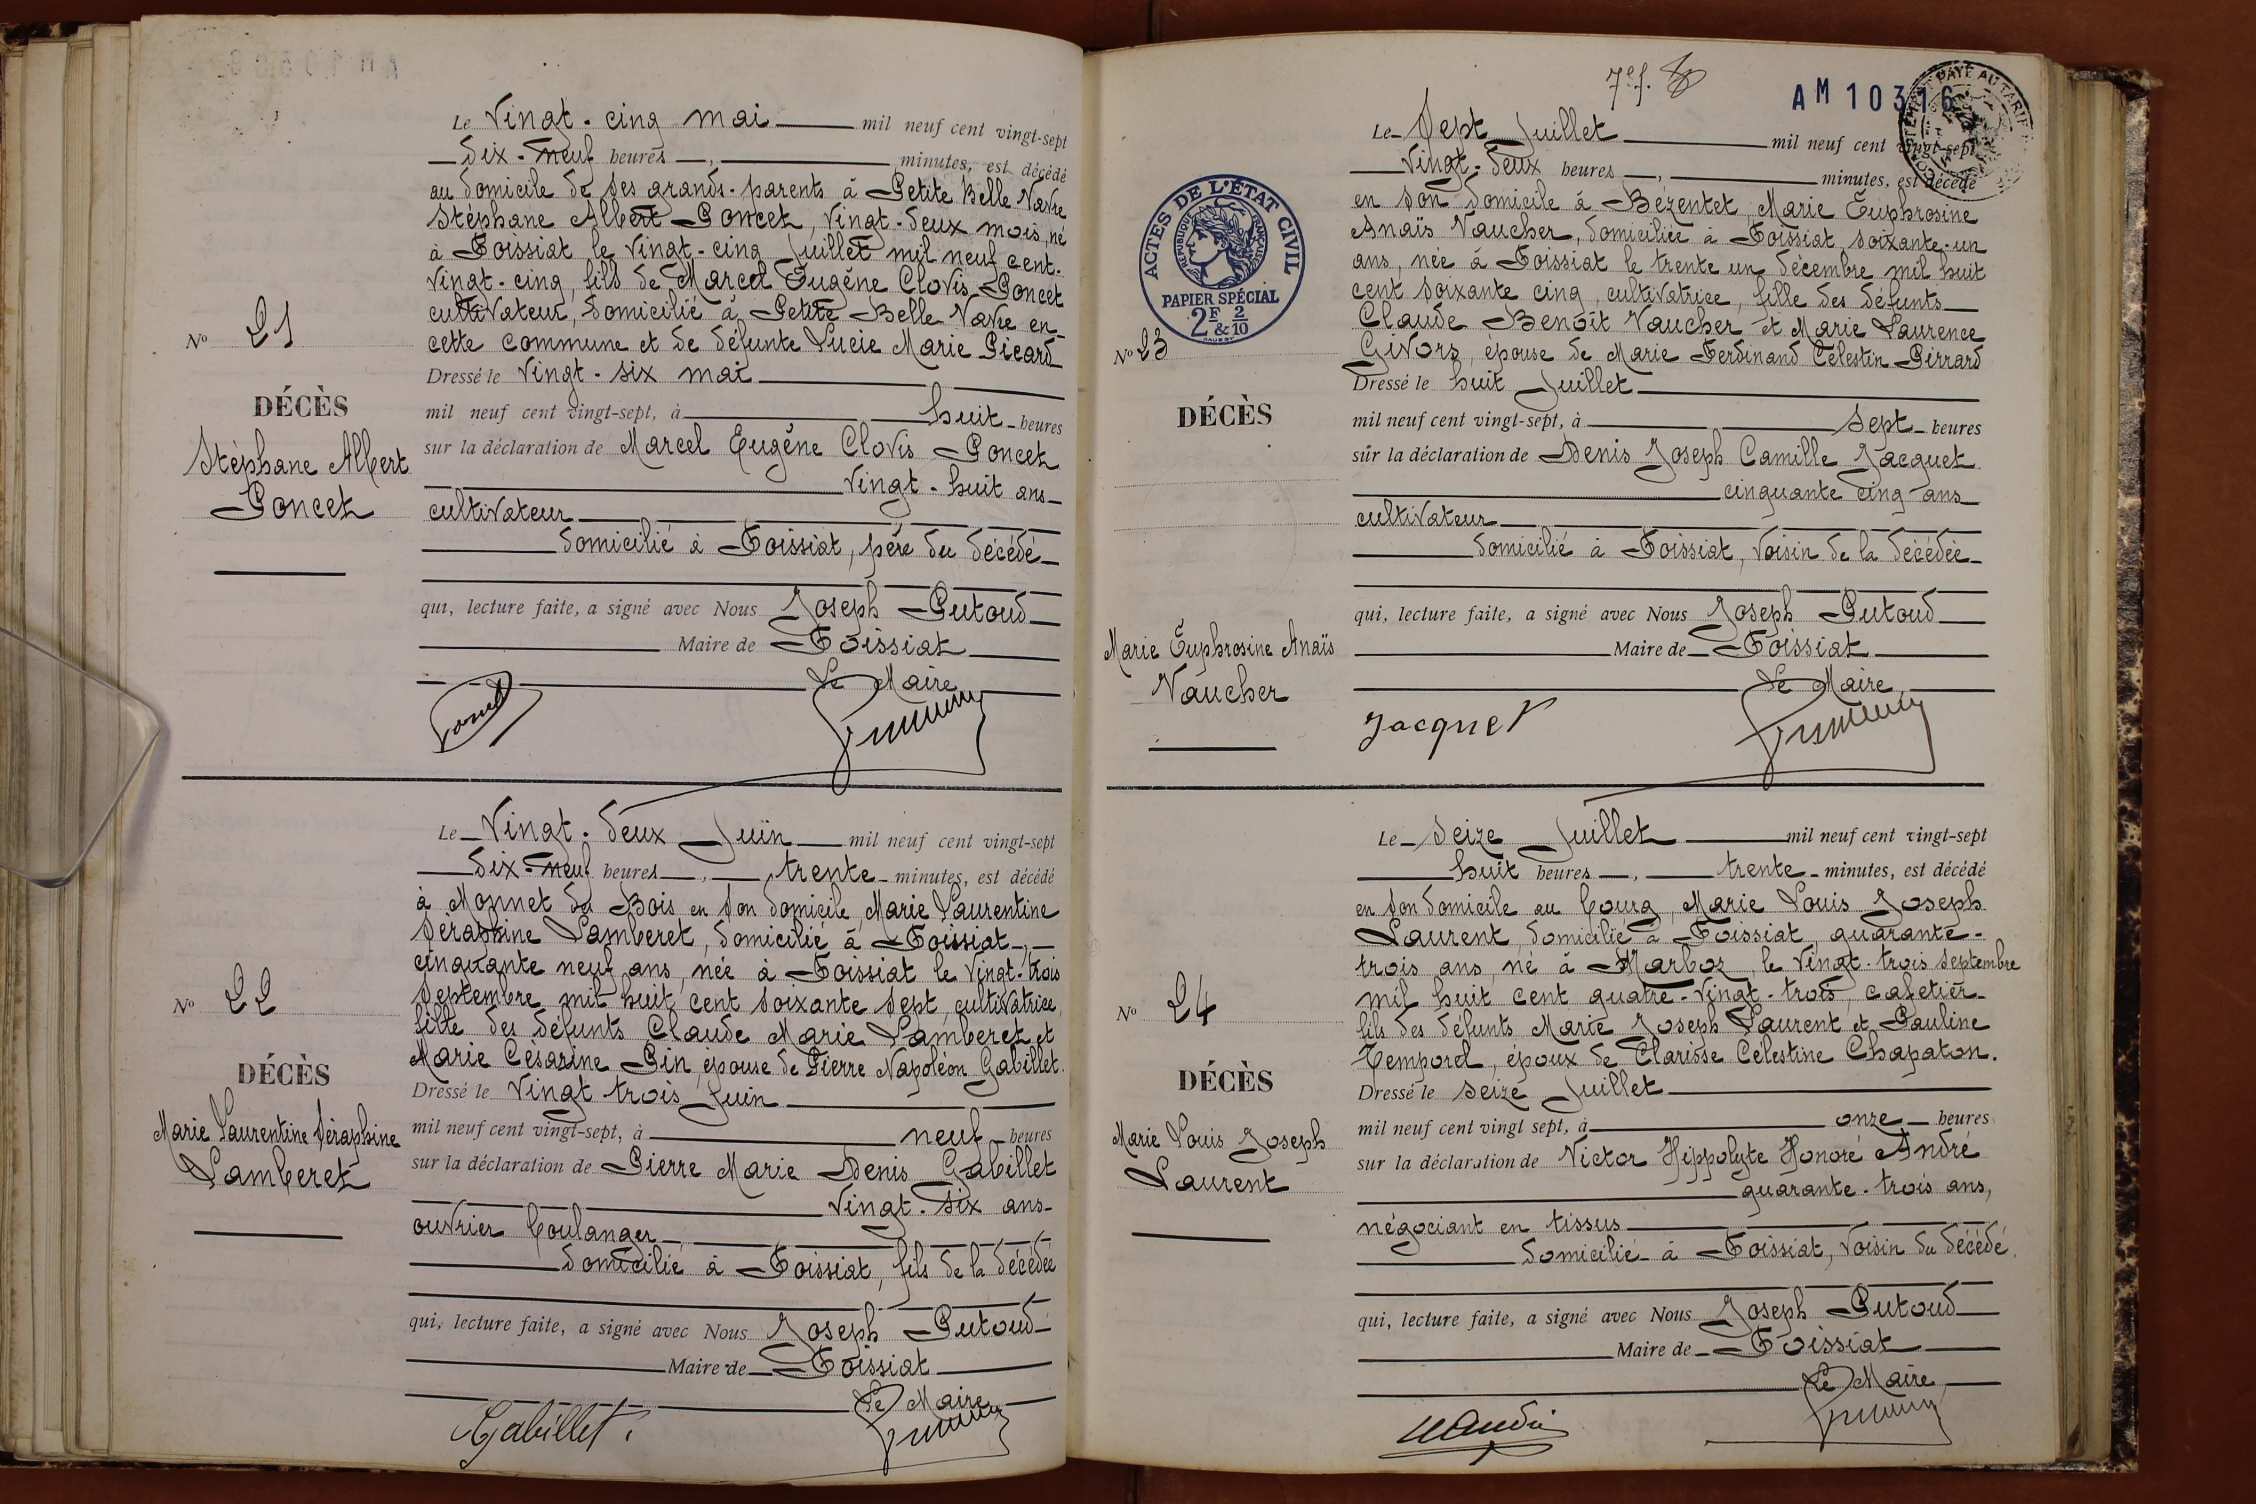 Le Vingt-cinq mai mil neuf cent vingt-sept
dix-neuf heures , minutes, est décédé
au domicile de ses grands-parents à Petite Belle Vavre
Stéphane Albert Poncet, vingt-deux mois, né
à Foissiat le vingt-cinq Juillet mil neuf cent-
vingt-cinq, fils de Marcel Eugène Clovis Poncet
cultivateur, domicilié à Petite Belle Vavre en
cette commune et de défunte Lucie Marie Picard
Dressé le vingt-six mai
mil neuf cent vingt-sept, à huit heures
sur la déclaration de Marcel Eugène Clovis Poncet
vingt-huit ans
cultivateur
domicilié à Foissiat, père du décédé
qui, lecture faite, a signé avec Nous Joseph Putoud
Maire de Foissiat
Le Maire
Poncet
No 21
DÉCÈS
Stéphane Albert
Poncet
Le Vingt-deux Juin mil neuf cent vingt-sept
dix-neuf heures , trente minutes, est décédé
à Monnet du Bois en son domicile, Marie Laurentine
Séraphine Lamberet, domicilié à Foissiat,
cinquante neuf ans, née à Foissiat le vingt-trois
septembre mil huit cent soixante sept, cultivatrice,
fille des défunts Claude Marie Lamberet et
Marie Césarine Pin, épouse de Pierre Napoléon Gabillet.
Dressé le vingt trois Juin
mil neuf cent vingt-sept, à neuf heures
sur la déclaration de Pierre Marie Denis Gabillet
vingt-six ans
ouvrier boulanger
domicilié à Foissiat, fils de la décédée
qui, lecture faite, a signé avec Nous Joseph Putoud
Maire de Foissiat
Le Maire
Gabillet
No 22
DÉCÈS
Marie Laurentine Séraphine
Lamberet
7e f.
AM 10316
Le Sept Juillet mil neuf cent vingt-sept
Vingt-deux heures , minutes, est décédé
en son domicile à Bézentet, Marie Euphrosine
Anaïs Vaucher, domiciliée à Foissiat, soixante-un
ans, née à Foissiat le trente un décembre mil huit
cent soixante cinq, cultivatrice, fille des défunts
Claude Benoît Vaucher et Marie Laurence
Givors, épouse de Marie Ferdinand Célestin Pirrard
Dressé le huit Juillet
mil neuf cent vingt-sept, à sept heures
sur la déclaration de Denis Joseph Camille Jacquet
cinquante cinq ans
cultivateur
domicilié à Foissiat, voisin de la décédée
qui, lecture faite, a signé avec Nous Joseph Putoud
Maire de Foissiat
Le Maire
Jacquet
ACTES DE L'ÉTAT CIVIL
RÉPUBLIQUE FRANÇAISE
PAPIER SPÉCIAL
2F & 2/10
No 23
DÉCÈS
Marie Euphrosine Anaïs
Vaucher
Le Seize Juillet mil neuf cent vingt-sept
huit heures , trente minutes, est décédé
en son domicile au bourg, Marie Louis Joseph
Laurent, domicilié à Foissiat, quarante-
trois ans, né à Marboz, le vingt-trois septembre
mil huit cent quatre-vingt-trois, cafetier-
fils des défunts Marie Joseph Laurent et Pauline
Temporel, époux de Clarisse Célestine Chapaton.
Dressé le seize Juillet
mil neuf cent vingt sept, à onze heures
sur la déclaration de Victor Hippolyte Honoré André
quarante-trois ans,
négociant en tissus
domicilié à Foissiat, voisin du décédé.
qui, lecture faite, a signé avec Nous Joseph Putoud
Maire de Foissiat
Le Maire
No 24
DÉCÈS
Marie Louis Joseph
Laurent